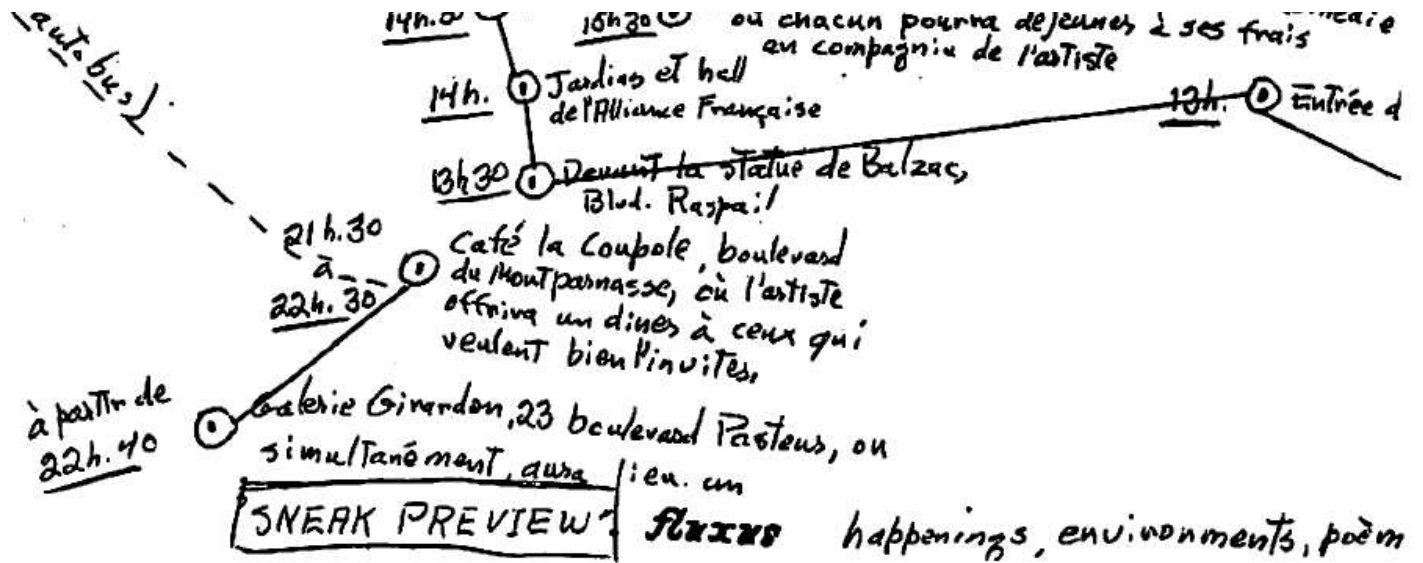 autobus)
14h.
15h30 où chacun pourra déjeuner à ses frais
en compagnie de l'artiste
14h. Jardins et hall
de l'Alliance Française
13h. Entrée d
13h30 Devant la statue de Balzac,
Blvd. Raspail
21h.30
à
22h.30
Café la Coupole, boulevard
du Montparnasse, où l'artiste
offrira un diner à ceux qui
veulent bien l'inviter.
à partir de
22h.40
Galerie Girardon, 23 boulevard Pasteur, ou
simultanément, aura lieu. un
SNEAK PREVIEW: fluxus happenings, environments, poèm